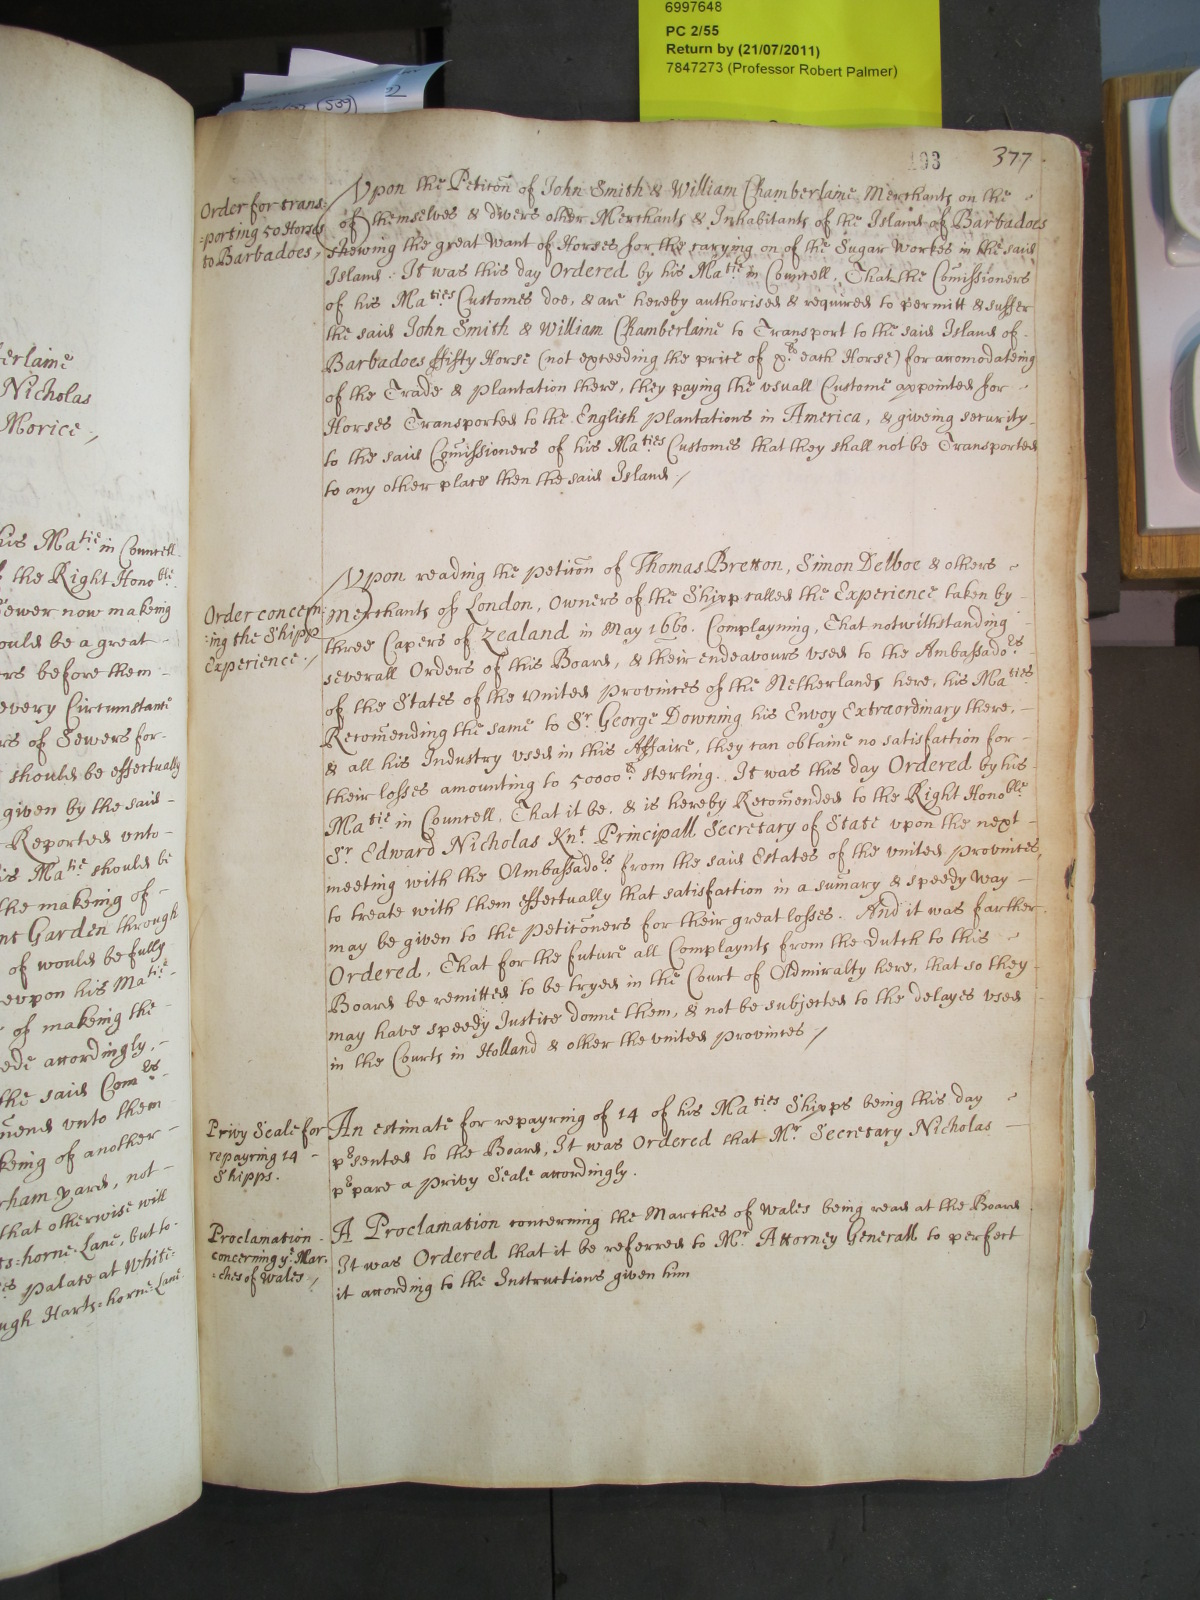 6997648
PC 2/55
Return by (21/07/2011)
7847273 (Professor Robert Palmer)
(539)
193
377
erlaine
Nicholas
Morice
his Ma.tie in Councell
the Right Hono.ble
Sewer now makeing
ould be a great
rs before them
every Circumstance
rs of Sewers for
should be effectually
given by the said
Reported vnto
is Ma.tie should be
the makeing of
nt Garden through
of would be fully
evpon his Ma.tie
of makeing the
ede accordingly
the said Com.rs
mend vnto them
keing of another
rham yard, not
that otherwise will
ts-horne-Lane, but to
s palace at White-
ugh Harts-horne-Lane
Order for trans-
-porting 50 Horses
to Barbadoes
Vpon the Peticõn of John Smith & William Chamberlaine Merchants on the
of themselves & divers other Merchants & Inhabitants of the Island of Barbadoes
shewing the great want of Horses for the carying on of the Sugar Workes in the said
Island. It was this day Ordered by his Ma.tie in Councell, That the Comissioners
of his Ma.ties Customes doe, & are hereby authorised & required to permitt & suffer
the said John Smith & William Chamberlaine to Transport to the said Island of
Barbadoes ffifty Horse (not exceeding the price of x.li each Horse) for accomodateing
of the Trade & plantation there, they paying the vsuall Custome appointed for
Horses Transported to the English plantations in America, & giveing security
to the said Comissioners of his Ma.ties Customes that they shall not be Transported
to any other place then the said Island
Order concern-
-ing the Shipp
Experience
Vpon reading the peticõn of Thomas Bretton, Simon Delboe & others
Merchants of London, Owners of the Shipp called the Experience taken by
three Capers of Zealand in May 1660. Complayning, That notwithstanding
severall Orders of this Board, & their endeavours vsed to the Ambassado.rs
of the States of the vnited provinces of the Netherlands here, his Ma.ties
Recomending the same to S.r George Downing his Envoy Extraordinary there,
& all his Industry vsed in this Affaire, they can obtaine no satisfaction for
their losses amounting to 50000.li sterling. It was this day Ordered by his
Ma.tie in Councell, That it be, & is hereby Recomended to the Right Hono.ble
S.r Edward Nicholas Kn.t Principall Secretary of State vpon the next
meeting with the Ambassado.rs from the said Estates of the vnited provinces,
to treate with them effectually that satisfaction in a sumary & speedy way
may be given to the peticõners for their great losses. And it was farther
Ordered, That for the future all Complaynts from the Dutch to this
Board be remitted to be tryed in the Court of Admiralty here, that so they
may have speedy Justice donne them, & not be subjected to the delayes vsed
in the Courts in Holland & other the vnited provinces
Privy Seale for
repayring 14
Shipps.
An estimate for repayring of 14 of his Ma.ties Shipps being this day
p.rsented to the Board, It was Ordered that M.r Secretary Nicholas
p.rpare a privy Seale accordingly.
Proclamation
concerning y.e Mar-
-ches of Wales
A Proclamation concerning the Marches of Wales being read at the Board
It was Ordered that it be referred to M.r Attorney Generall to perfect
it according to the Instructions given him